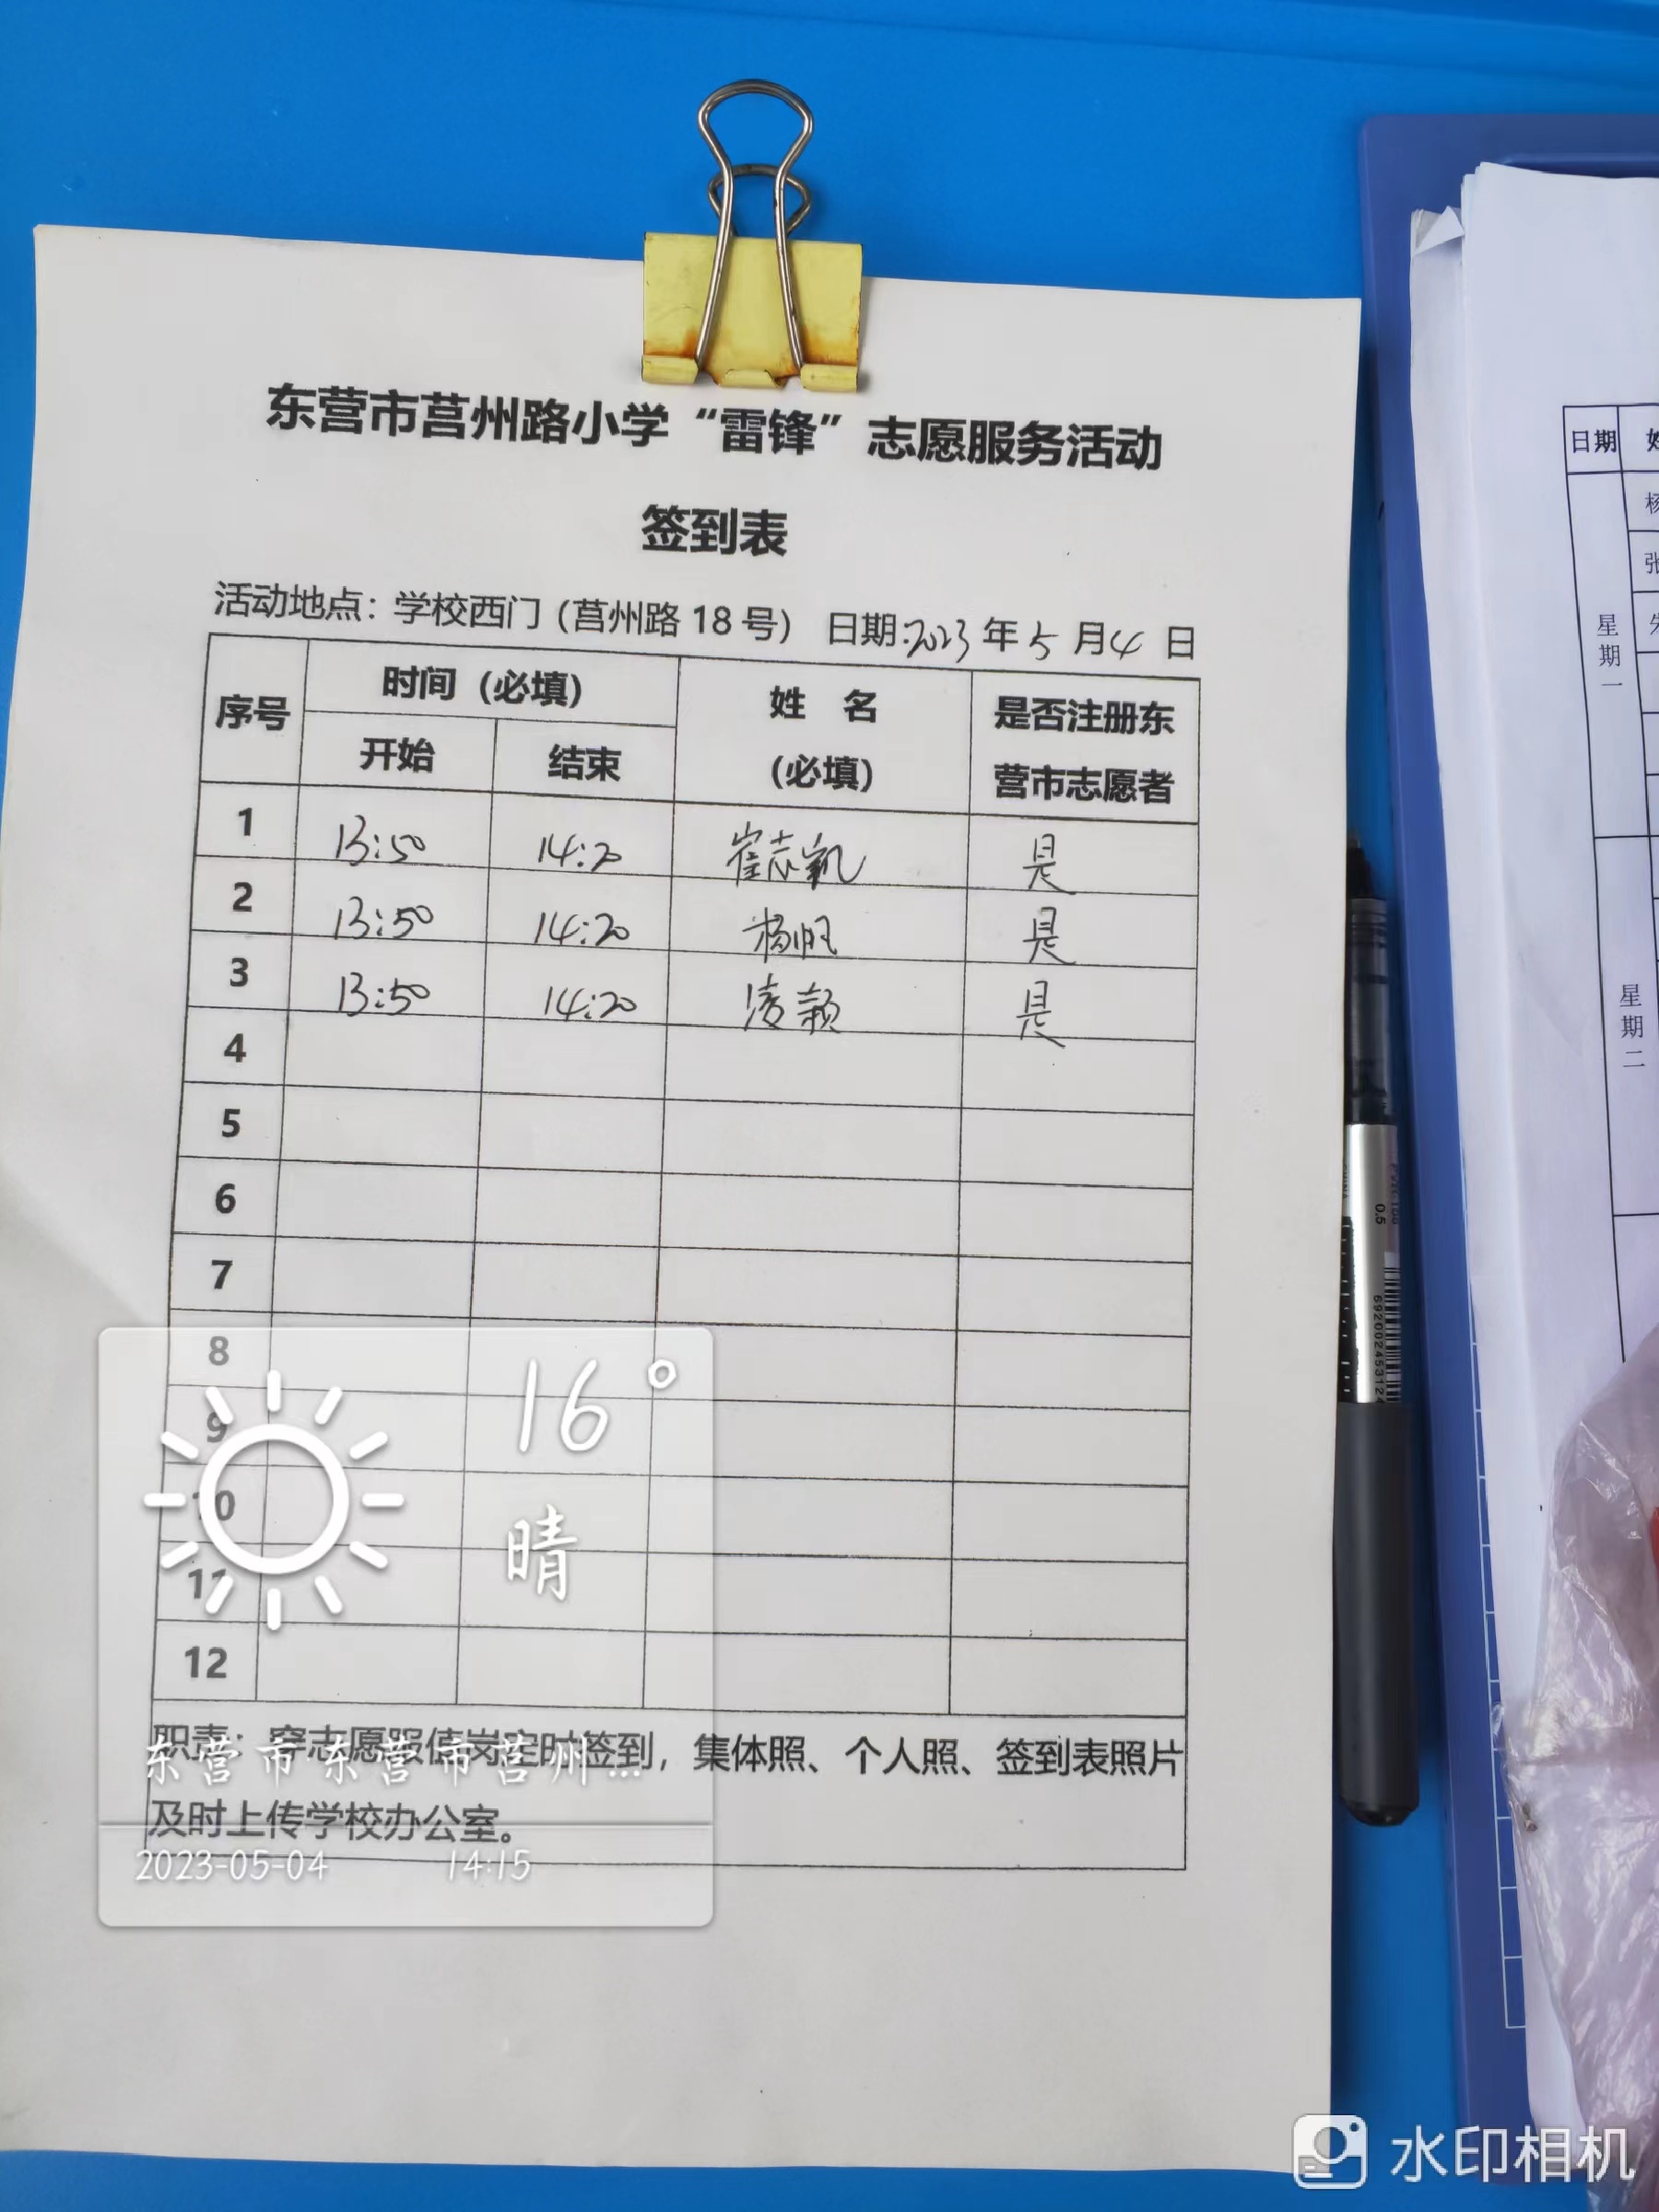 东营市莒州路小学“雷锋”志愿服务活动
签到表
活动地点：学校西门（莒州路 18 号） 日期:2023 年 5 月 4 日
序号 时间（必填） 姓 名（必填） 是否注册东营市志愿者
开始 结束
1 13:50 14:20 崔志凯 是
2 13:50 14:20 杨帆 是
3 13:50 14:20 凌颖 是
4
5
6
7
8
9
10
11
12
职责：穿志愿服值岗定时签到，集体照、个人照、签到表照片
及时上传学校办公室。
16°
晴
东营市东营市莒州...
2023-05-04 14:15
日期
杨
张
星期一
星期二
0.5
水印相机